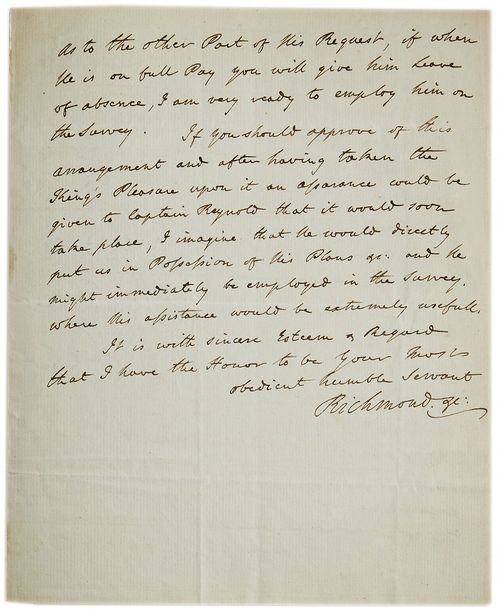 As to the other Part of His Request, if when
He is on full Pay you will give him Leave
of absence, I am very ready to employ him on
the Survey. If you should approve of this
arrangement and after having taken the
King's Pleasure upon it an assurance could be
given to Captain Reynold that it would soon
take place, I imagine that He would directly
put us in Possession of His Plans &c: and He
might immediately be employed in the Survey.
where His assistance would be extremely usefull.
It is with sincere Esteem & Regard
that I have the Honor to be Your most
obedient humble Servant
Richmond. &c: